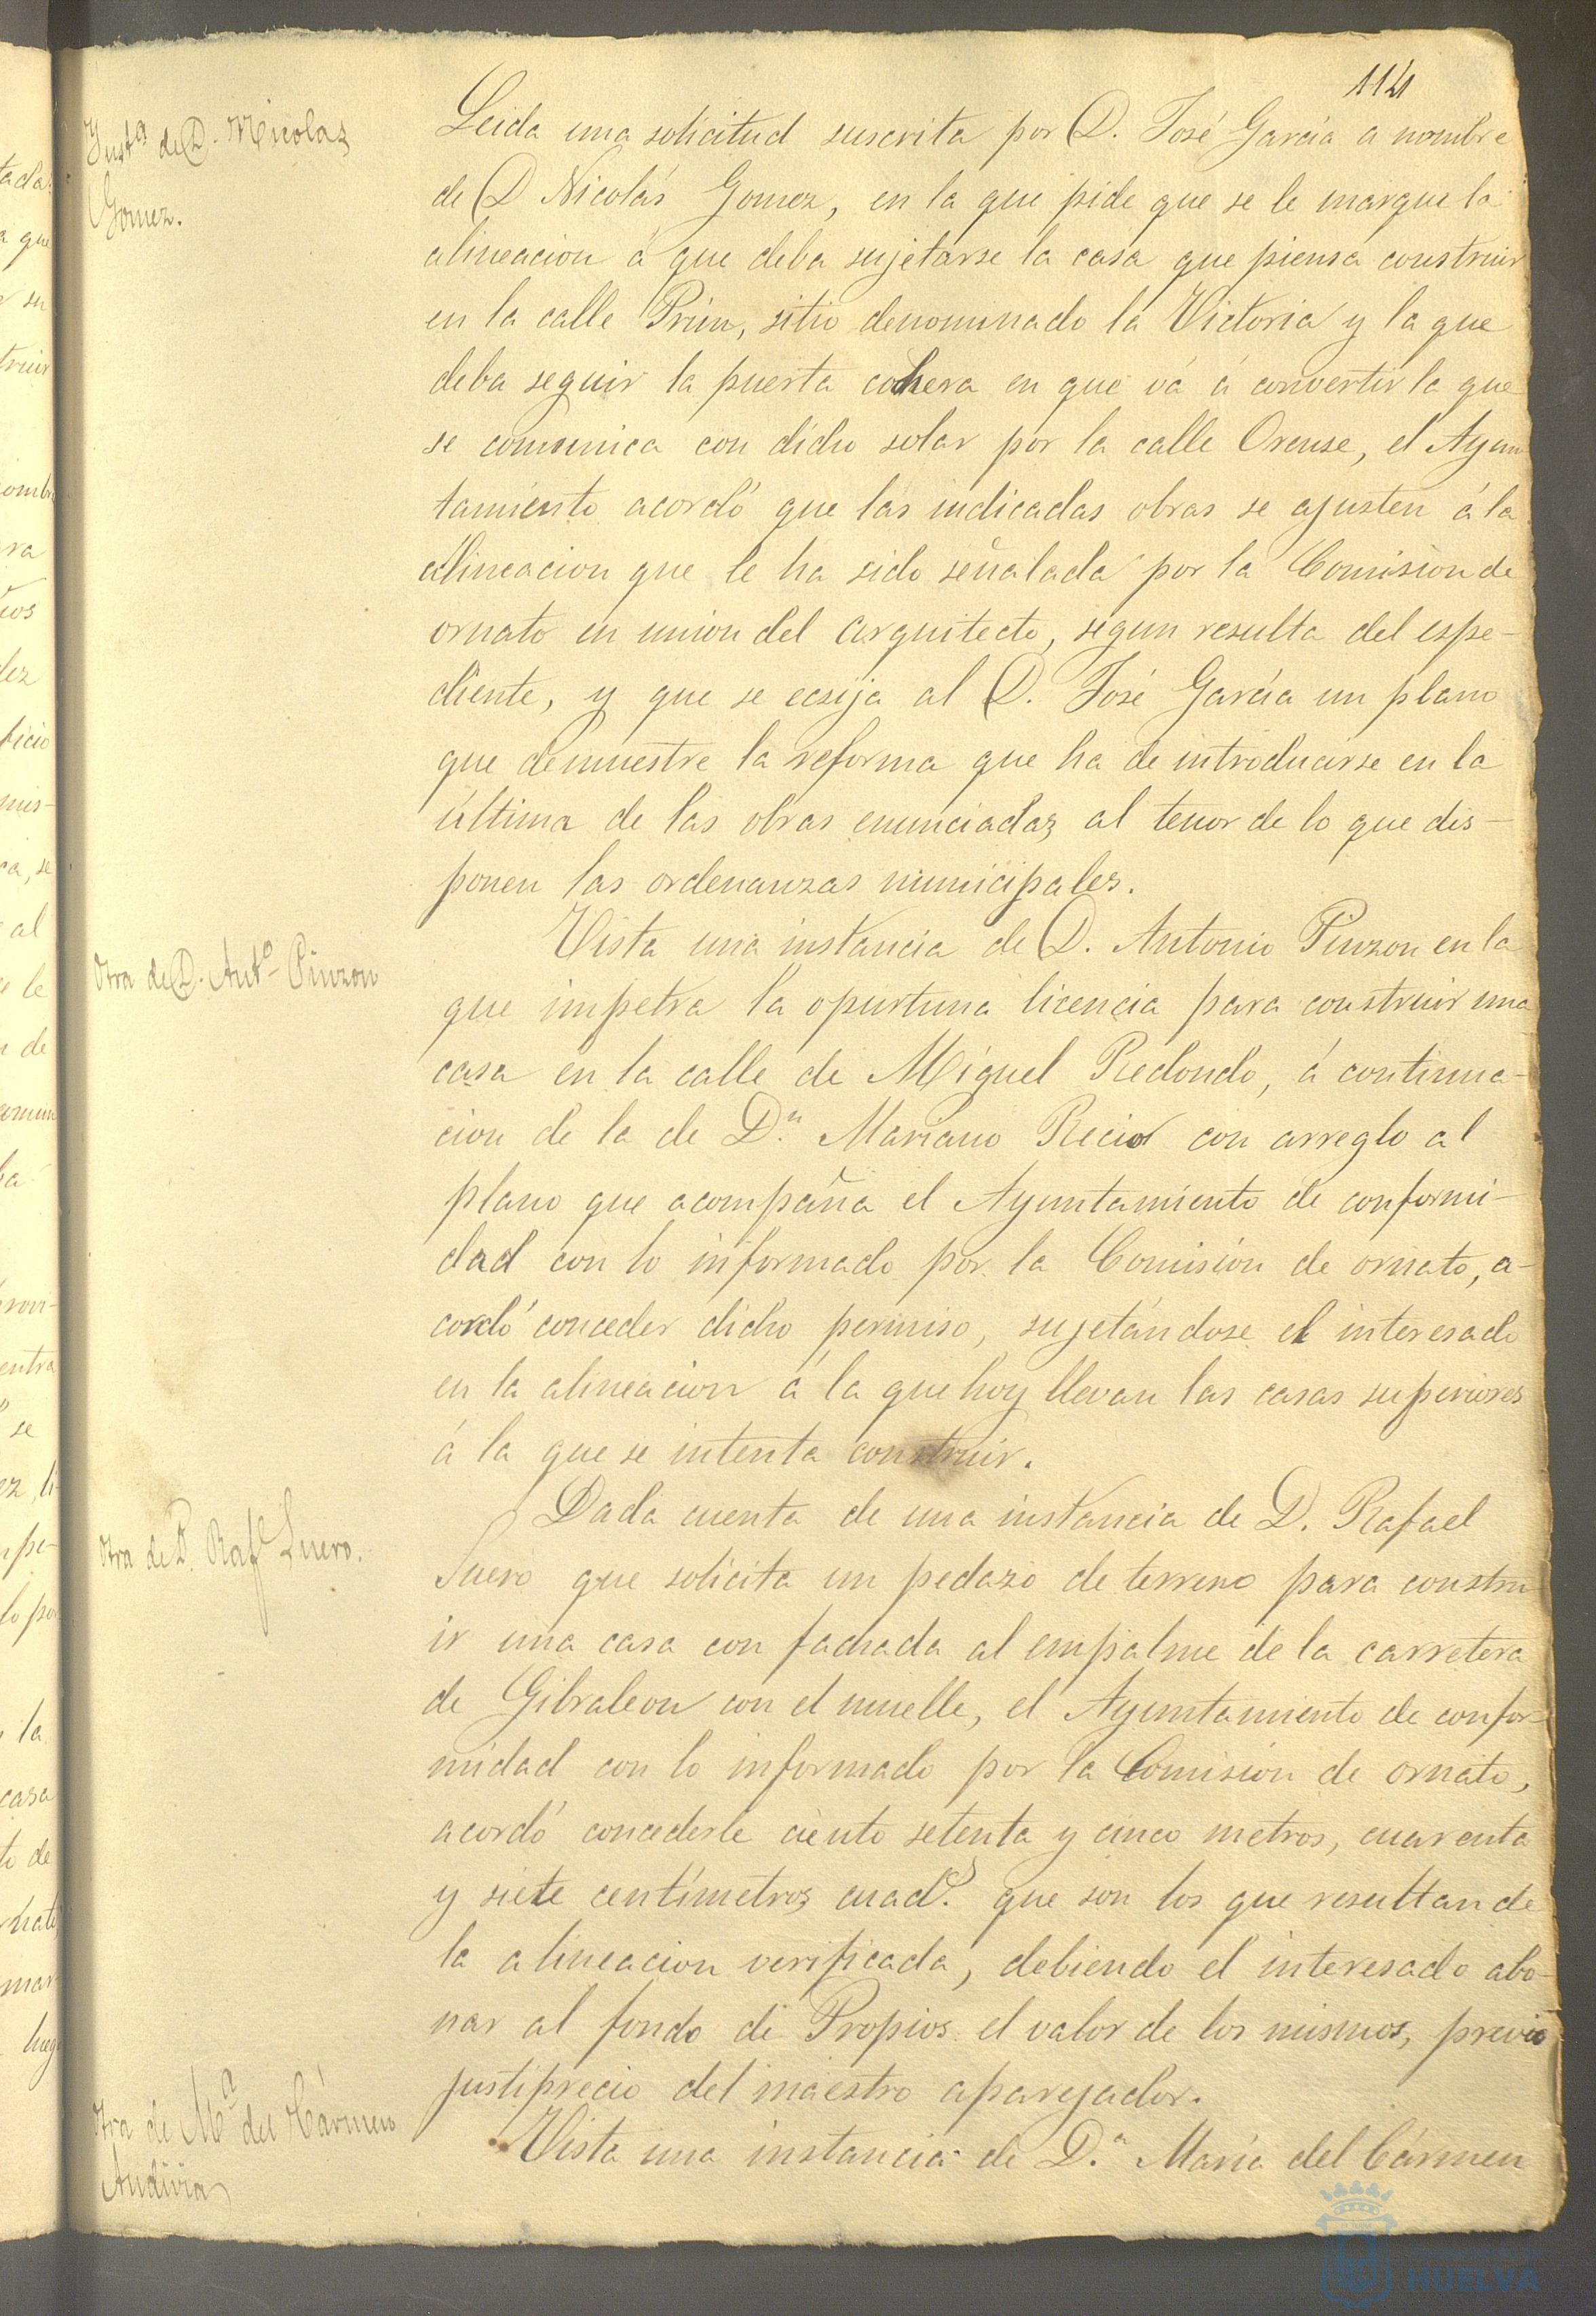 114
Ynst.ª de D. Nicolas
Gomez.
Leida una solicitud suscrita por D. José García a nombre
de D Nicolás Gomez, en la que pide que se le marque la
alineacion á que deba sujetarse la casa que piensa construir
en la calle Prim, sitio denominado la Victoria y la que
deba seguir la puerta cohera en que vá á convertir la que
se comunica con dicho solar por la calle Orense, el Ayun
tamiento acordó que las indicadas obras se ajusten á la
alineacion que le ha sido señalada por la Comision de
ornato en union del arquitecto, segun resulta del espe-
diente, y que se ecsija al D. José García un plano
que demuestre la reforma que ha de introducirse en la
última de las obras enunciadas, al tenor de lo que dis-
ponen las ordenanzas municipales.
Otra de D. Antº Pinzon
Vista una instancia de D. Antonio Pinzon en la
que impetra la oportuna licencia para construir una
casa en la calle de Miguel Redondo, á continua-
cion de la de D.n Mariano Recio con arreglo al
plano que acompaña el Ayuntamiento de conformi-
dad con lo informado por la Comision de ornato, a-
cordó conceder dicho permiso, sujetándose el interesado
en la alineacion á la que hoy llevan las casas superiores
á la que se intenta construir.
Otra de D. Raf.l Suero.
Dada cuenta de una instancia de D. Rafael
Suero que solicita un pedazo de terreno para constru
ir una casa con fachada al empalme de la carretera
de Gibraleon con el muelle, el Ayuntamiento de confor-
midad con lo informado por la Comision de ornato,
acordó concederle ciento setenta y cinco metros, cuarenta
y siete centímetros cuad.s que son los que resultan de
la alineacion verificada, debiendo el interesado abo-
nar al fondo de Propios el valor de los mismos, previo
justiprecio del maestro aparejador.
Otra de Mª del Cármen
Andivia
Vista una instancia de D.ª María del Cármen
HUELVA